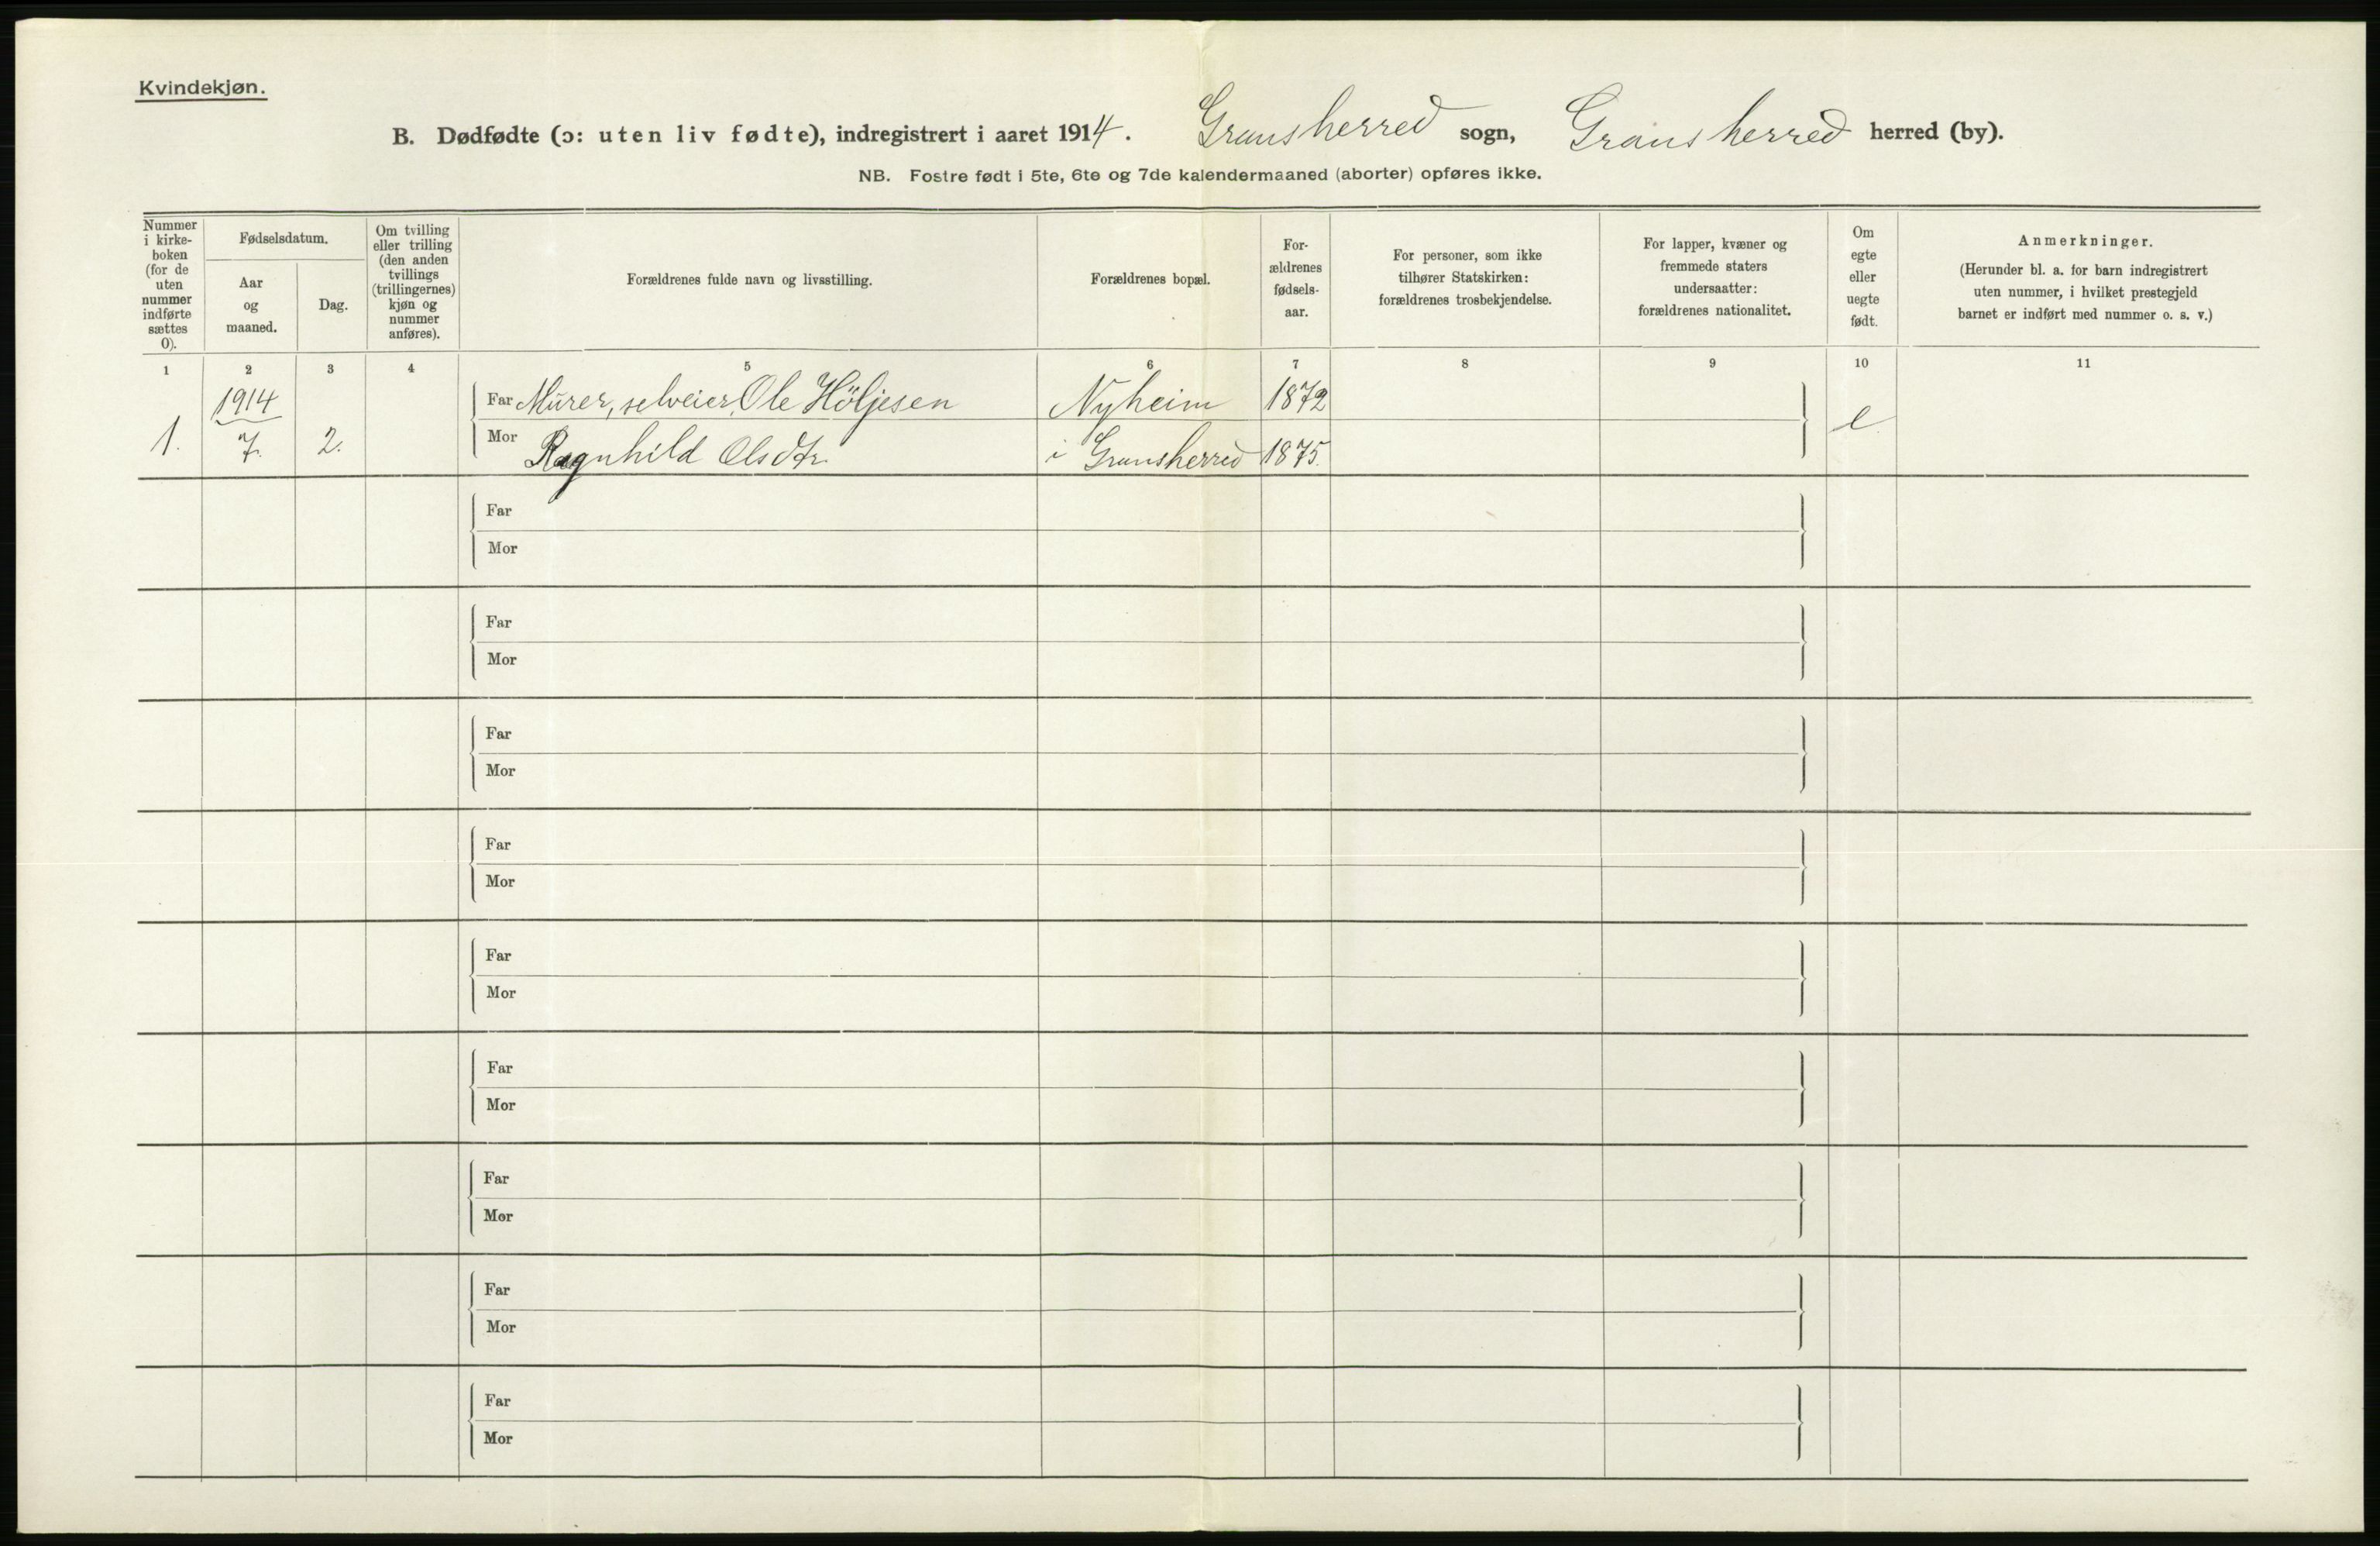 Kvindekjøn.
B. Dødfødte (ɔ: uten liv fødte), indregistrert i aaret 1914. Gransherred sogn, Gransherred herred (by).
NB. Fostre født i 5te, 6te og 7de kalendermaaned (aborter) opføres ikke.
Nummer i kirke- boken (for de uten nummer indførte sættes 0).
Fødselsdatum.
Aar og maaned.
Dag.
Om tvilling eller trilling (den anden tvillings (trillingernes) kjøn og nummer anføres).
Forældrenes fulde navn og livsstilling.
Forældrenes bopæl.
For- ældrenes fødsels- aar.
For personer, som ikke tilhører Statskirken: forældrenes trosbekjendelse.
For lapper, kvæner og fremmede staters undersaatter: forældrenes nationalitet.
Om egte eller uegte født.
Anmerkninger.
(Herunder bl. a. for barn indregistrert uten nummer, i hvilket prestegjeld barnet er indført med nummer o. s. v.)
1 2 3 4 5 6 7 8 9 10 11
1914 Far Murer, selveier, Ole Höljesen Nyheim 1872 e.
1. 7. 2. Mor Ragnhild Olsdtr. i Gransherred 1875.
Far
Mor
Far
Mor
Far
Mor
Far
Mor
Far
Mor
Far
Mor
Far
Mor
Far
Mor
Far
Mor